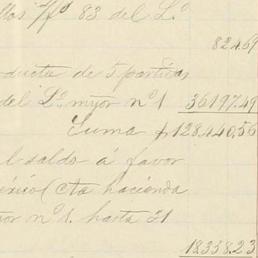 llos 7/fº 83 del Lº
82.469
ducto de 5 partidas
del Lº myor nº 1 36197.49
Suma $ 128,440.56
l saldo á favor
éxico (cta hacienda
or nº 1. hasta 31
18338.23